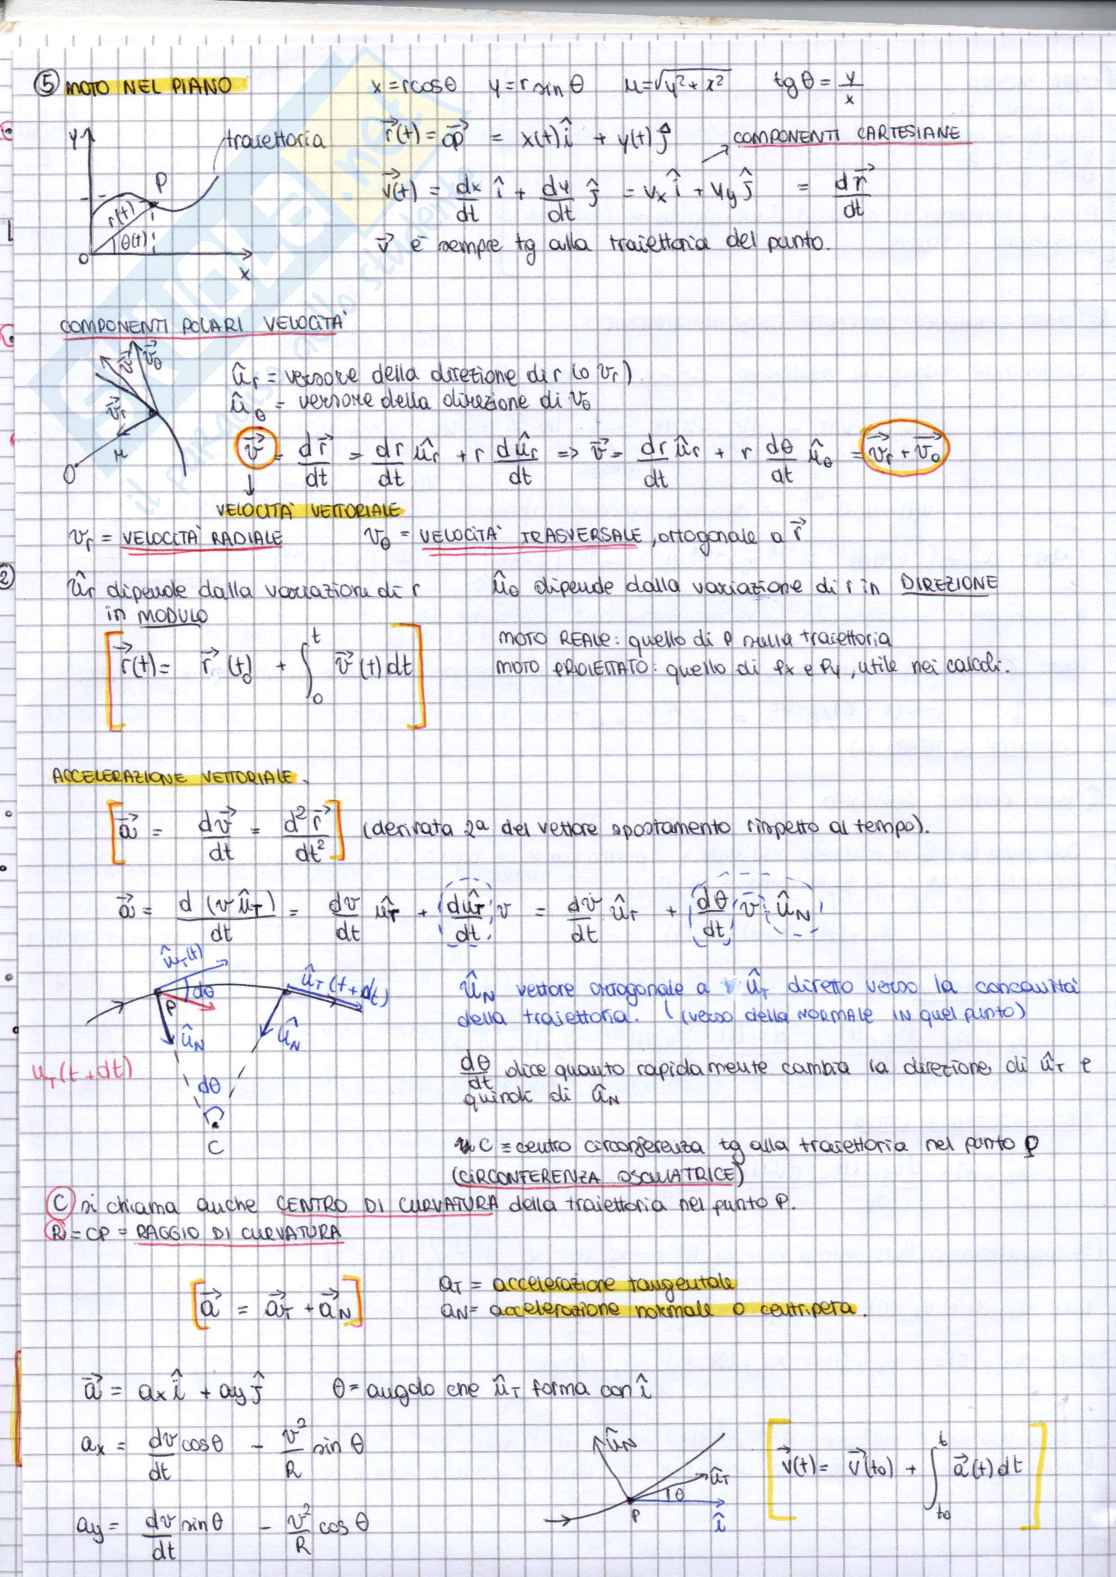 ⑤ MOTO NEL PIANO x = r cosθ y = r sin θ r = √y²+x² tg θ = y/x
y traiettoria r⃗(t) = OP⃗ = x(t) î + y(t) ĵ COMPONENTI CARTESIANE
P r(t) θ(t) O x
v⃗(t) = dx/dt î + dy/dt ĵ = vx î + vy ĵ = dr⃗/dt
v⃗ è sempre tg alla traiettoria del punto.
COMPONENTI POLARI VELOCITA'
v⃗ v⃗θ v⃗r r O
ûr = versore della direzione di r (o vr)
ûθ = versore della direzione di vθ
v⃗ = dr⃗/dt = dr/dt ûr + r dûr/dt => v⃗ = dr/dt ûr + r dθ/dt ûθ = v⃗r + v⃗θ
VELOCITA' VETTORIALE
vr = VELOCITA' RADIALE vθ = VELOCITA' TRASVERSALE, ortogonale a r⃗
② ûr dipende dalla variazione di r ûθ dipende dalla variazione di r in DIREZIONE
in MODULO
[r⃗(t) = r⃗(t0) + ∫0^t v⃗(t) dt]
MOTO REALE: quello di P sulla traiettoria
MOTO PROIETTATO: quello di Px e Py, utile nei calcoli.
ACCELERAZIONE VETTORIALE.
[a⃗ = dv⃗/dt = d²r⃗/dt²] (derivata 2ª del vettore spostamento rispetto al tempo).
a⃗ = d(v ûT)/dt = dv/dt ûT + dûT/dt v = dv/dt ûT + dθ/dt v ûN
ûT(t) dθ P ûT(t+dt) ûN ûN
uT(t+dt) dθ C
ûN vettore ortogonale a ûT diretto verso la concavità
della traiettoria. (verso della NORMALE IN quel punto)
dθ/dt dice quanto rapidamente cambia la direzione di ûT e
quindi di ûN
C = centro circonferenza tg alla traiettoria nel punto P
(CIRCONFERENZA OSCULATRICE)
C si chiama anche CENTRO DI CURVATURA della traiettoria nel punto P.
R = CP = RAGGIO DI CURVATURA
[a⃗ = a⃗T + a⃗N]
aT = accelerazione tangentale
aN = accelerazione normale o centripeta.
a⃗ = ax î + ay ĵ θ = angolo che ûT forma con î
ax = dv/dt cosθ - v²/R sin θ
ûN ûT θ P î
[v⃗(t) = v⃗(t0) + ∫t0^t a⃗(t) dt]
ay = dv/dt sinθ - v²/R cos θ